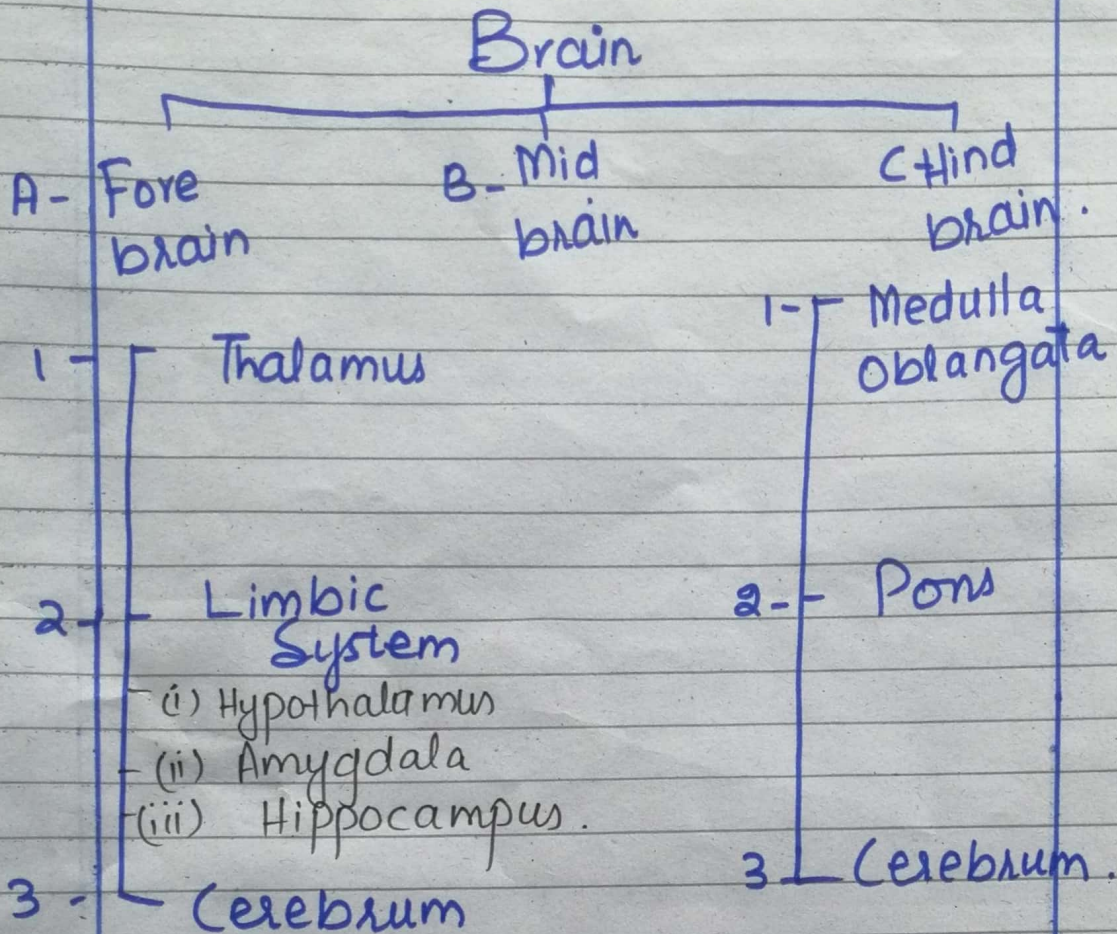 Brain
A- Fore brain
B- Mid brain
C Hind brain.
1- Thalamus
2- Limbic System
(i) Hypothalamus
(ii) Amygdala
(iii) Hippocampus.
3- Cerebrum
1- Medulla Oblangata
2- Pons
3 Cerebrum.